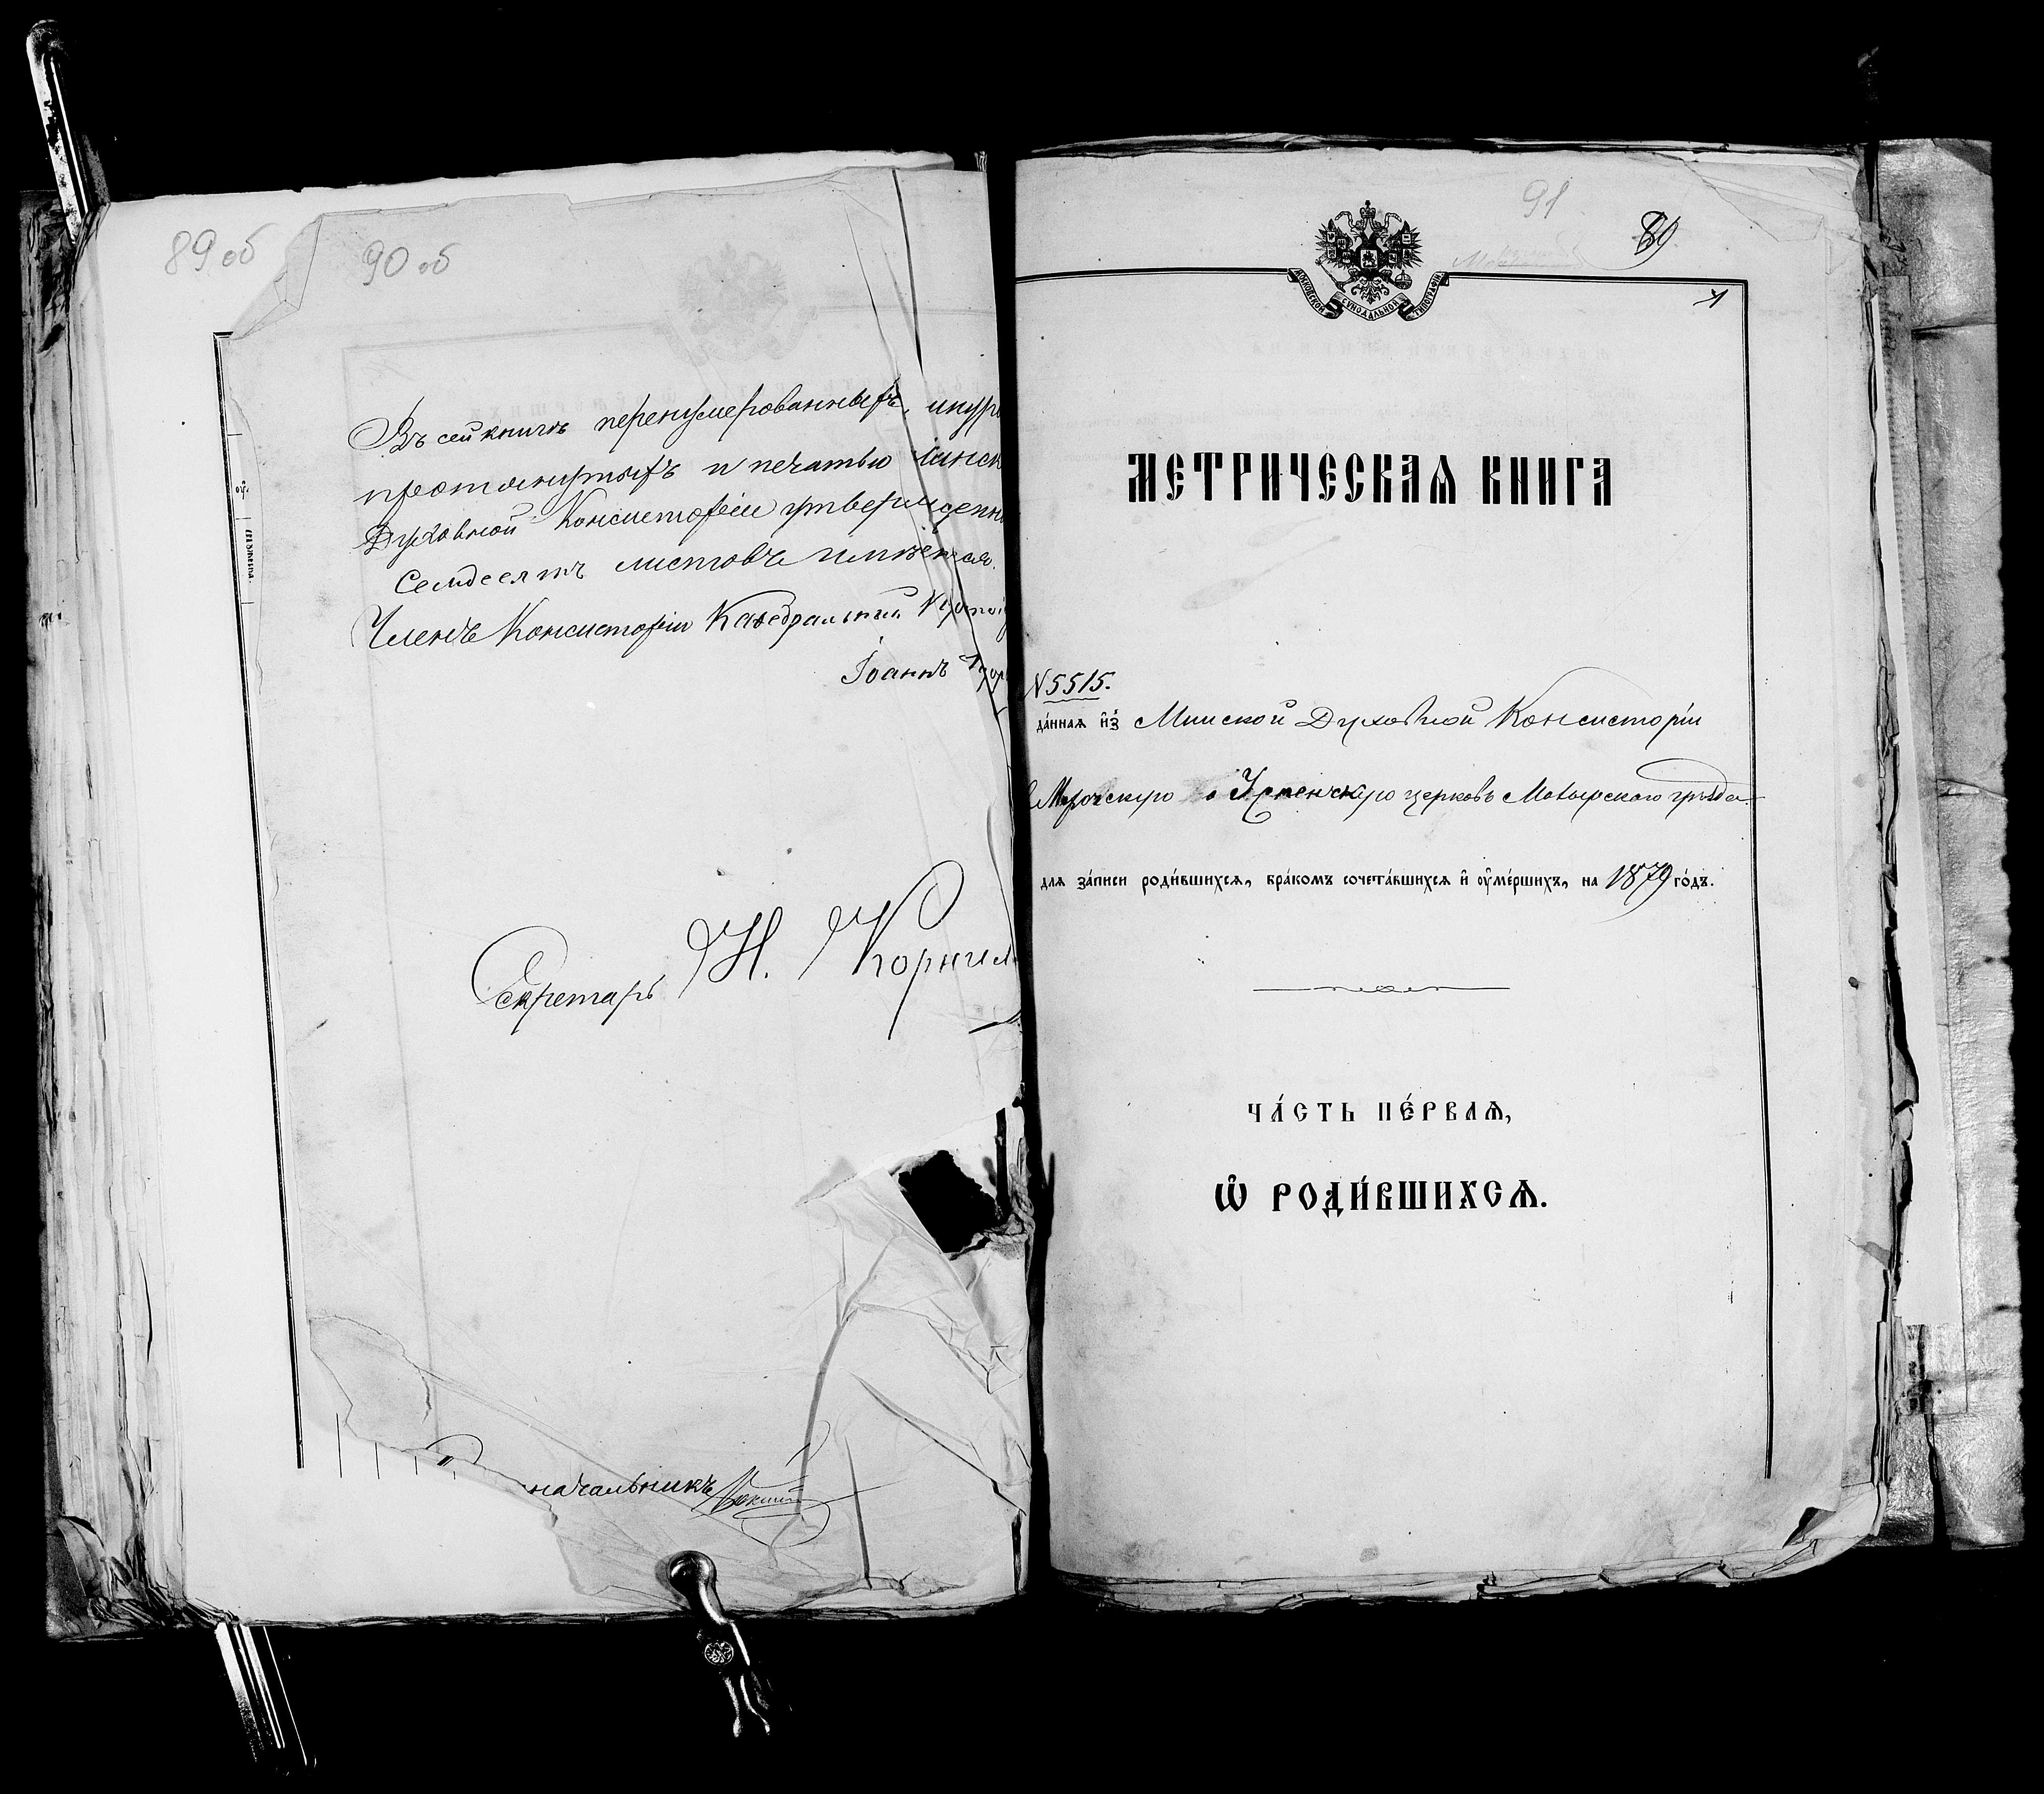 89 об
90 об
Въ сей книгѣ перенумерованныхъ, шнур
протянутыхъ и печатью Минск
Духовной Консисторіи утвержденн
семдесятъ листовъ имѣется.
Членъ Консисторіи Каѳедральный Прото
Іоаннъ
Секретарь Н. Корнил
начальникъ
91
89
МОСКОВСКОЙ СѴНОДАЛЬНОЙ ТИПОГРАФІИ
1
МЕТРИ́ЧЕСКАѦ КНИГА
N 5515.
да́ннаѧ и҆з̾ Минской Духовной Консисторіи
Успенскую церковь Мозырскаго уѣзда
для за́писи роди́вшихсѧ, бра́комъ сочета́вшихсѧ и҆ ѹ҆ме́ршихъ, на 1879 го́дъ.
ЧА́СТЬ ПЕ́РВАѦ,
Ѡ҆ РОДИ́ВШИХСѦ.